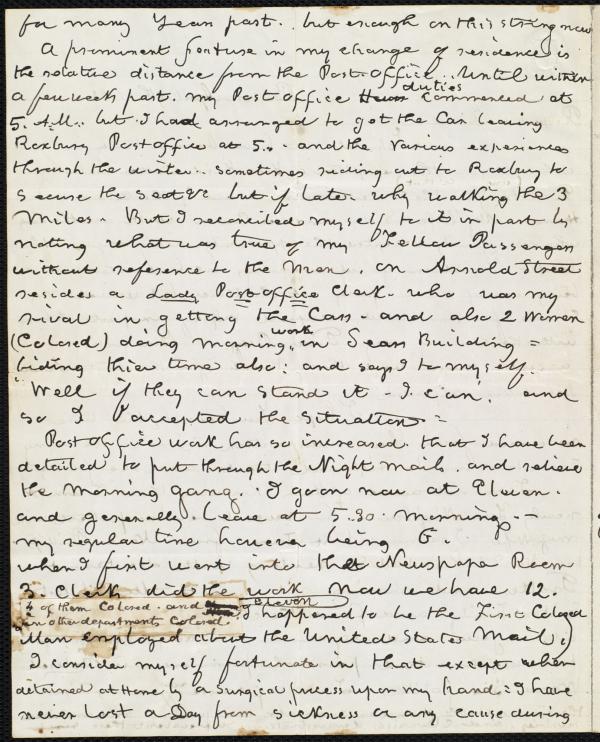 for many Years past. but enough on this string now
A prominent feature in my change of residence is
the relative distance from the Post-office. Until within
a few weeks past. my Post office Hours duties commenced at
5. A.M. but I had arranged to get the Car leaving
Roxbury Post office at 5.. and the various experiences
through the winter.. sometimes riding out to Roxbury to
secure the seat &c but if late. why walking the 3
Miles. But I reconciled myself to it in part by
noting what was true of my Fellow Passengers
without reference to the Men. on Arnold Street
resides a Lady Post-office Clerk. who was my
rival in getting the Cars. and also 2 Women
(Colored) doing morning work in Sears Building =
biding their time also: and says I to myself.
"Well if they can stand it - I can, and
so I accepted the Situation =
Post office work has so increased. that I have been
detailed to put through the Night mails. and relieve
the morning gang. I go on now at Eleven.
and generally leave at 5.30. mornings. -
my regular time however being 6.
when I first went into the Newspaper Room
3. Clerk did the work now we have 12.
4 of them Colored. and Eleven
in other departments Colored. I happened to be the First Colored
Man employed about the United States Mail.)
I consider myself fortunate in that except when
detained at Home by a Surgical process upon my hand: I have
never lost a Day from sickness or any cause during